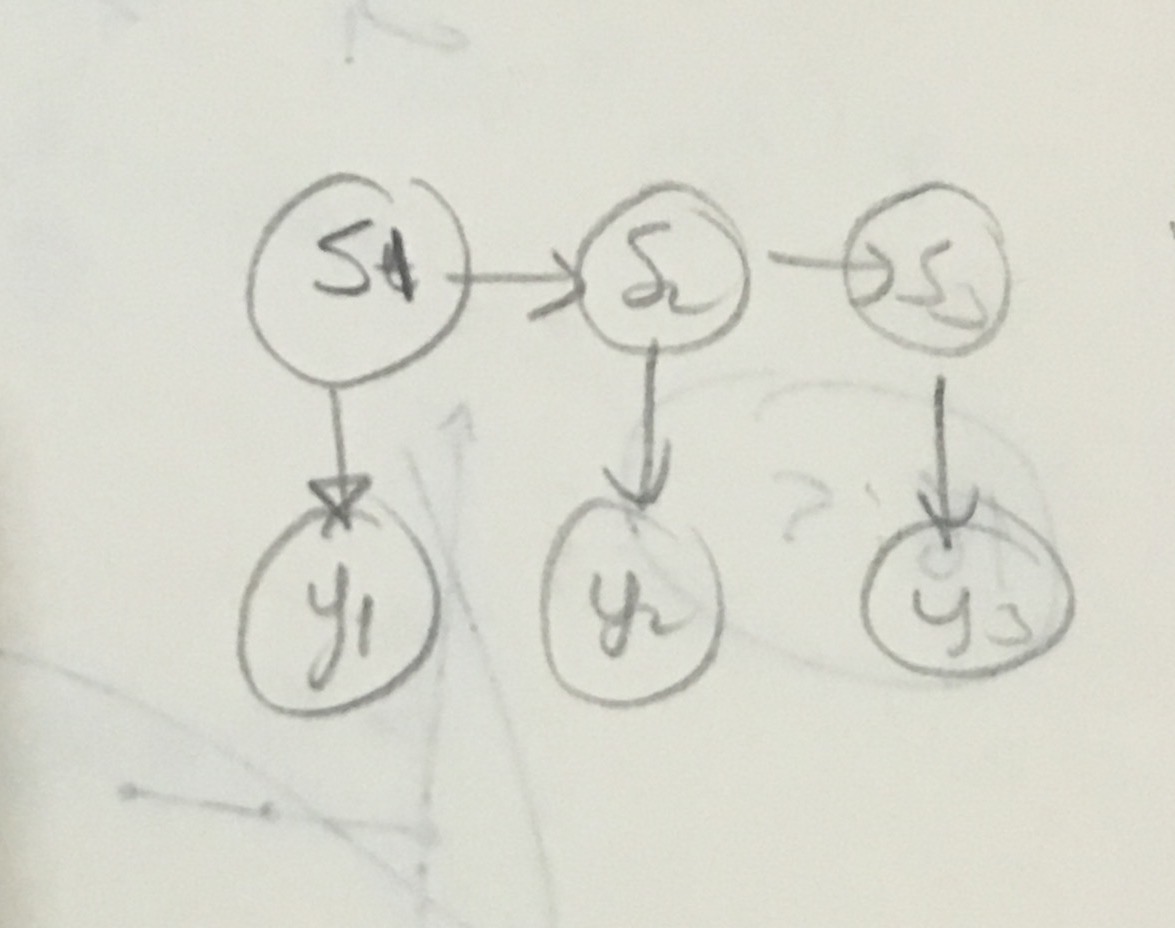 S1 S2 S3
y1 y2 y3